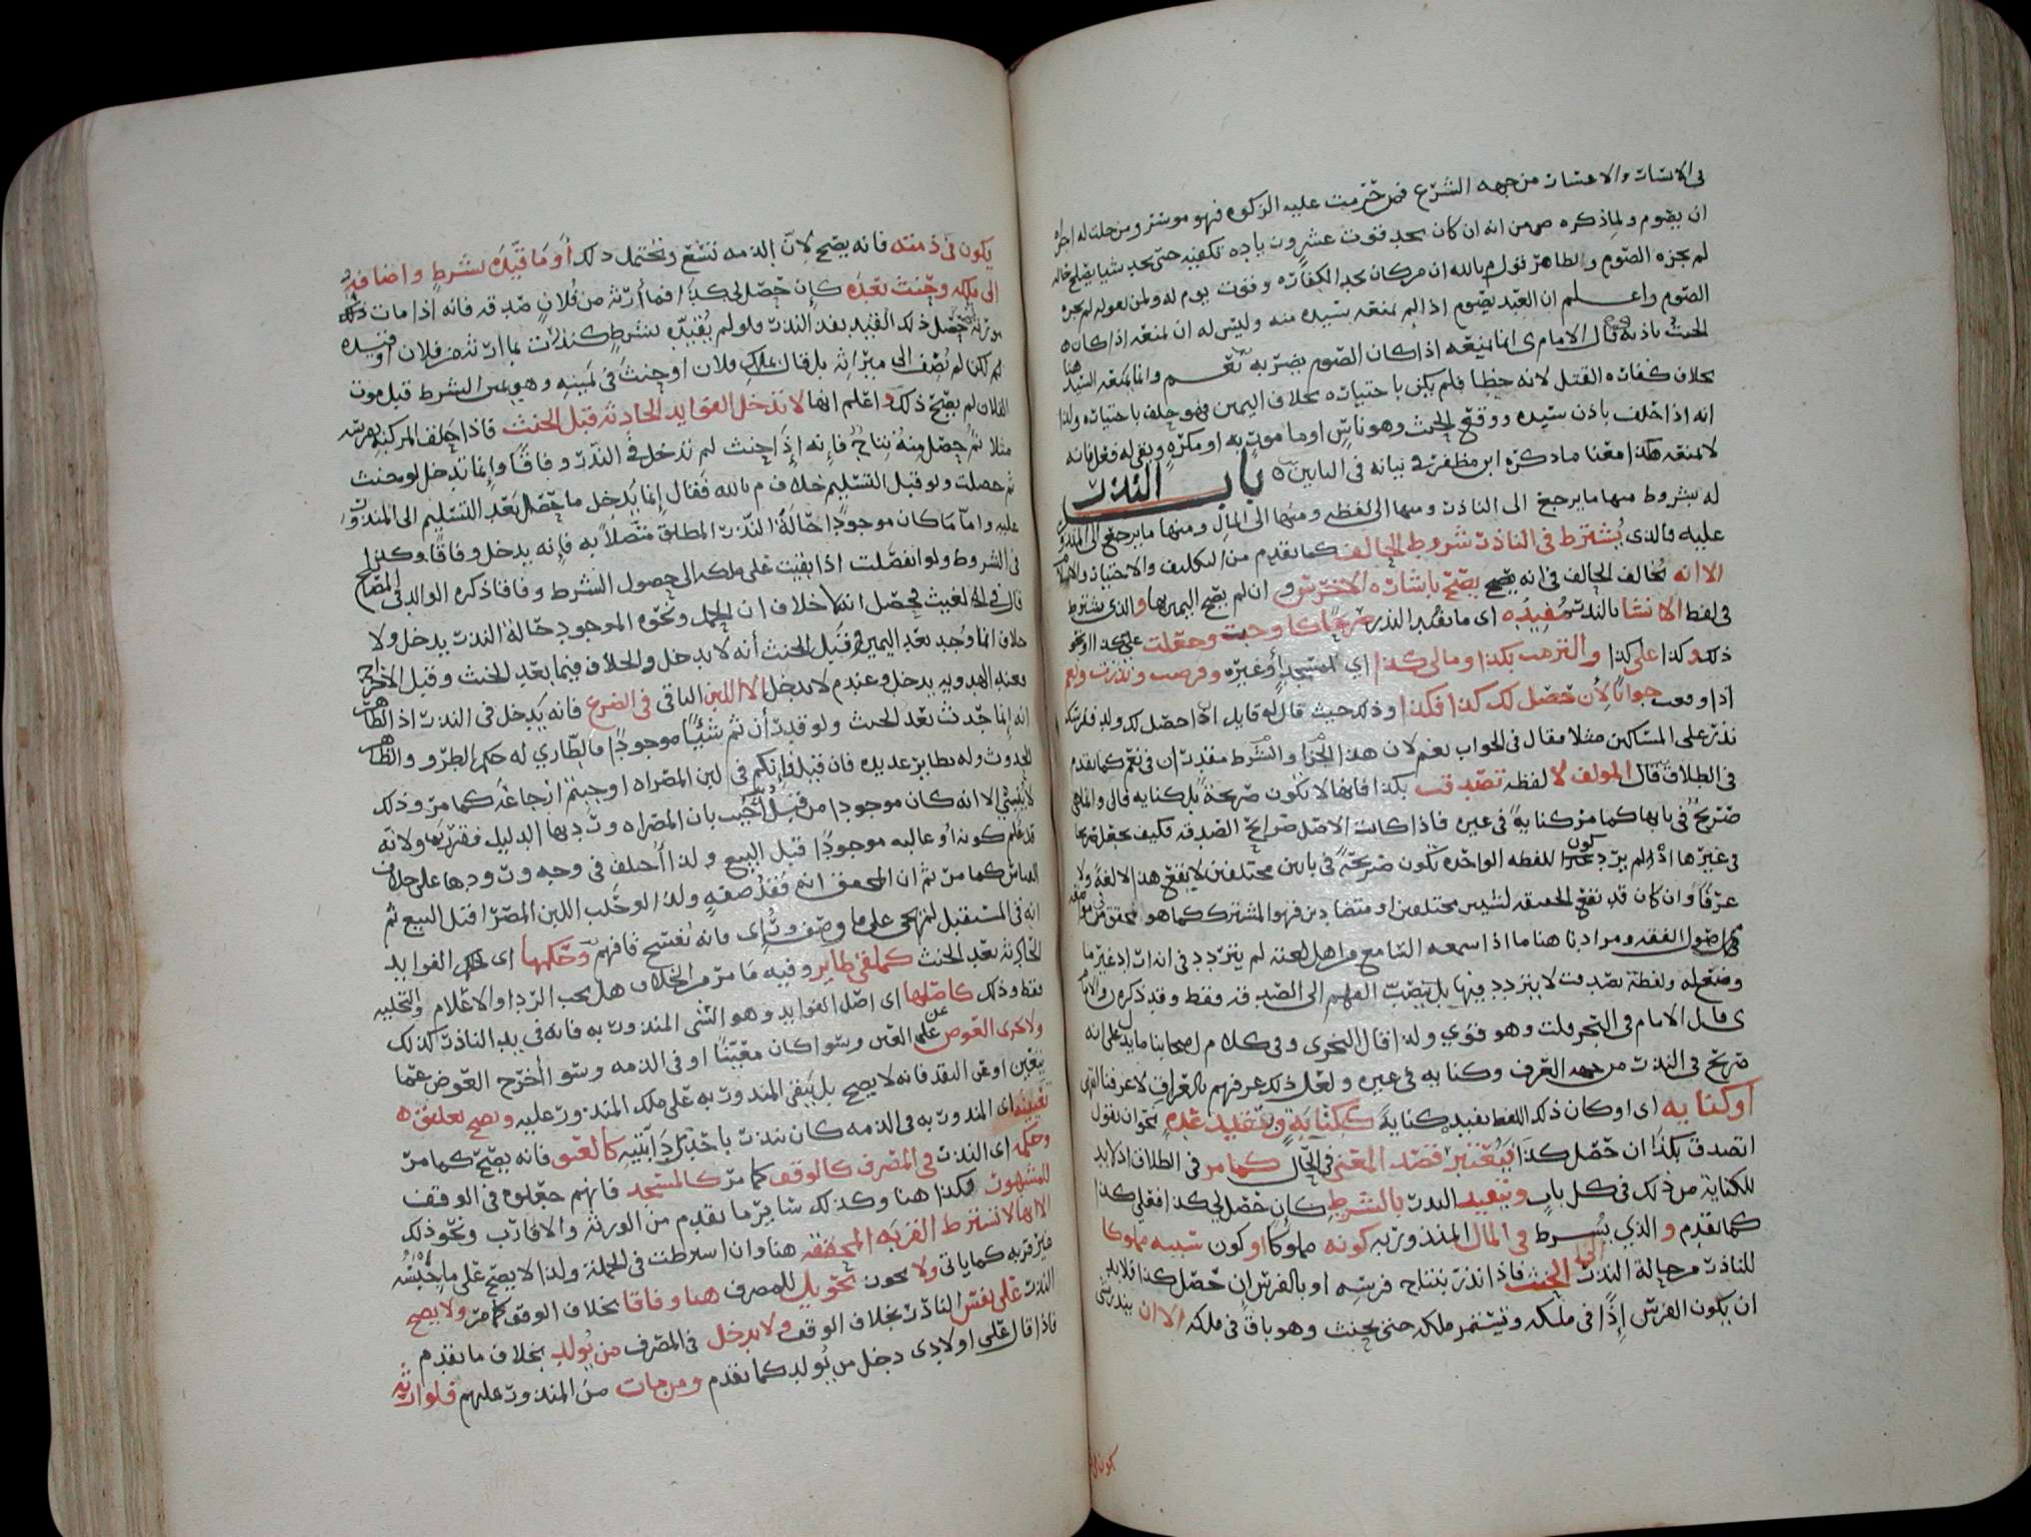 في الاثبات والاعتبار من جهه الشرع فمن حرمت عليه الزكوه فهو موسر ومن حلت له اجزاه
ان يصوم ولما ذكره ص من انه ان كان يجد قوت عشرون زياده تكفيه حتى يجد شيا
لم يجزه الصوم والظاهر من قول م بالله ان من كان يجد الكفاره وقوت يوم له ولمن يعوله لم يجزه
الصوم واعلم ان العبد يصوم اذا لم يمنعه سيده منه وليس له ان يمنعه اذا كان
الحنث باذنه قال الامام ى انما يمنعه اذا كان الصوم يضر به نعم وانما يمنعه السيد هنا
بخلاف كفاره القتل لانه خطا فلم يكن باختياره بخلاف اليمين فهو حلف باختياره ولذا
انه اذا حلف باذن سيده ووقع الحنث وهو ناس او ما موت به او مكره وبقي له فعل فانه
لا يمنعه هكذا معنا ما ذكره ابن مظفر في بيانه في البابين
باب النذر
له شروط منها ما يرجع الى الناذر ومنها الى لفظه ومنها الى المال ومنها ما يرجع الى المنذور
عليه فالذي يشترط في الناذر شروط الحالف كما تقدم من التكليف والاختيار والاسلام
الا انه يخالف الحالف في انه يصح باشاره الاخرس وان لم يصح اليمين بها والذي يشترط
في لفظ الانشا بالنذر مفيده اي ما تقيد النذر صريحا كاوجبت وجعلت على كذا او نحو
ذلك وكذا على كذا والتزمت بكذا ومالى كذا اي للمسجد او غيره وفرضت ونذرت ونعم
اذا وقعت جوابا لان حصل لك كذا فكذا وذلك حيث قال له قايل ان حصل لك ولد فلم تك
نذر على المساكين مثلا فقال في الجواب نعم لان هذا الجزا والشرط مقدران في نعم كما تقدم
في الطلاق قال المولف لا لفظه تصدقت بكذا فانها لا تكون صريحة بل كنايه قال وانما هي
صريح في بابها كما مر كناية في غيره فاذا كانت الاصل صرايح الصدقه فكيف يجعل صريحا
في غيرها اذ لم يرد كون اللفظه الواحده تكون صريحة في بابين مختلفين لا ينفع هذا لا لغة ولا
عرفا وان كان قد تقع الحقيقه لشيين مختلفين او متضادين فهو المشترك كما هو محقق في موضعه
في اصول الفقه ومرادنا هنا ما اذا سمعه السامع من اهل لغته لم يتردد في انه اراد غير ما
وضع له ولفظة تصدقت لا يتردد فيها بل يتصرف الفهم الى الصدقه فقط وقد ذكره ض والامام
ى قال الامام في البحر قلت وهو قوي ولذا قال النجري وفي كلام اصحابنا ما يدل على انه
صريح في النذر من جهه العرف وكنايه في غيره ولعل ذلك عرفهم بالعراق لا عرفنا
او كنايه اي او كان ذلك اللفظ يفيد كناية ككتابة وتقييد عده نحو ان يقول
اتصدق بكذا ان حصل كذا فيعتبر قصد المعنى في الحال كما مر في الطلاق اذ لا بد
للكناية من ذلك في كل باب وتقييد النذر بالشرط كان حصل لي كذا فعلي كذا
كما تقدم والذي يشترط في المال المنذور به كونه مملوكا او كون سببه مملوكا
للناذر من حالة النذر الى الحنث فاذا نذر بنتاج فرسه او بالفرس ان حصل كذا فلا بد
ان يكون الفرس اذا في ملكه ويستمر ملكه حتى يحنث وهو باق في ملكه الا ان ينذر بشي
يكون في ذمته فانه يصح لان الذمه تتسع وتحتمل ذلك او ما قيده بشرط واضافه
الى ملكه وحنث بعده كان حصل لي كذا فما ارثه من فلان صدقه فانه اذا مات
مورثه حصل ذلك القيد بعد النذر ولو لم يقيده بشرط كنذرت بما ارث من فلان او قيده
به لكنا لم نضف الى ميراثه بل قال بملك فلان او حنث في يمينه وهو عين الشرط قبل موت
الفلان لم يصح ذلك واعلم انها لا تدخل الفوايد الحادثه قبل الحنث فاذا حلف المركب بفرسه
مثلا ثم حصل منه نتاج فانه اذا حنث لم تدخل في النذر وفاقا وانما تدخل لو حنث
ثم حصلت ولو قبل التسليم خلاف م بالله فقال انما يدخل ما حصل بعد التسليم الى المنذور
عليه واما ما كان موجودا حالة النذر المطلق متصلا به فانه يدخل وفاقا وكذا
في الشروط ولو انفصلت اذا بقيت على ملكه الى حصول الشرط وفاقا ذكره الوالد في المصباح
قال في الغيث فحصل انه لا خلاف ان الحمل ونحوه الموجود حالة النذر يدخل ولا
خلاف انما وجد بعد اليمين وقبل الحنث انه لا يدخل والخلاف فيما بعد الحنث وقبل الاخراج
فعند الهدويه يدخل وعند م لا يدخل الا اللبن الباقي في الضرع فانه يدخل في النذر اذ الظاهر
انه انما حدث بعد الحنث ولو قدر ان ثم شيئا موجودا فالطاري له حكم الطرو والظاهر
الحدوث وله نظاير عديده فان قيل فانكم في لبن المصراه اوجبتم ارجاعه كما مر وذلك
لا ينبني الا انه كان موجودا من قبل اجيب بان المصراه ورد بها الدليل فقررتها ولانه
قد علم كونه او غالبه موجودا قبل البيع ولذا اختلف في وجه ورودها على خلاف
القياس كما مر ثم ان المحقق انه فقد صفه ولذا لو حلب اللبن المصرا قبل البيع ثم
انه في المستقبل لم يجئ على ما وصف وراى فانه يفسخ فافهم وحكمها اي حكم الفوايد
الحادثه بعد الحنث كملقى طاير وفيه ما مر من الخلاف هل يجب الرد او الاعلام والتخليه
فقط وذلك كاصلها اي اصل الفوايد وهو الشي المنذور به فانه في يد الناذر كذلك
ولا يجزى العوض عن العين وسوا كان معينا او في الذمه وسوا اخرج العوض عما
تعين او عن النقد فانه لا يصح بل يبقى المنذور به على ملك المنذور عليه ويصح تعليق
تعيينه اي المنذور به في الذمه كان نذر باحد دابتيه كالعتق فانه يصح كما مر
وحكمه اي النذر في المصرف كالوقف كما مر كالمسجد فانهم جعلوه في الوقف
للمشهور فكذا هنا وكذلك ساير ما تقدم من الورثه والاقارب ونحو ذلك
الا انها لا تشترط القربه المحققه هنا وان اشترطت في الجملة ولذا لا يصح على ما
غير قربه كما ياتى ولا يجوز تحويل للمصرف هنا وفاقا بخلاف الوقف كما مر ولا يصح
النذر على نفس الناذر بخلاف الوقف ولا يدخل في المصرف من يولد بخلاف ما تقدم
فاذا قال على اولادى دخل من يولد كما تقدم ومن مات من المنذور عليهم فلوارثه